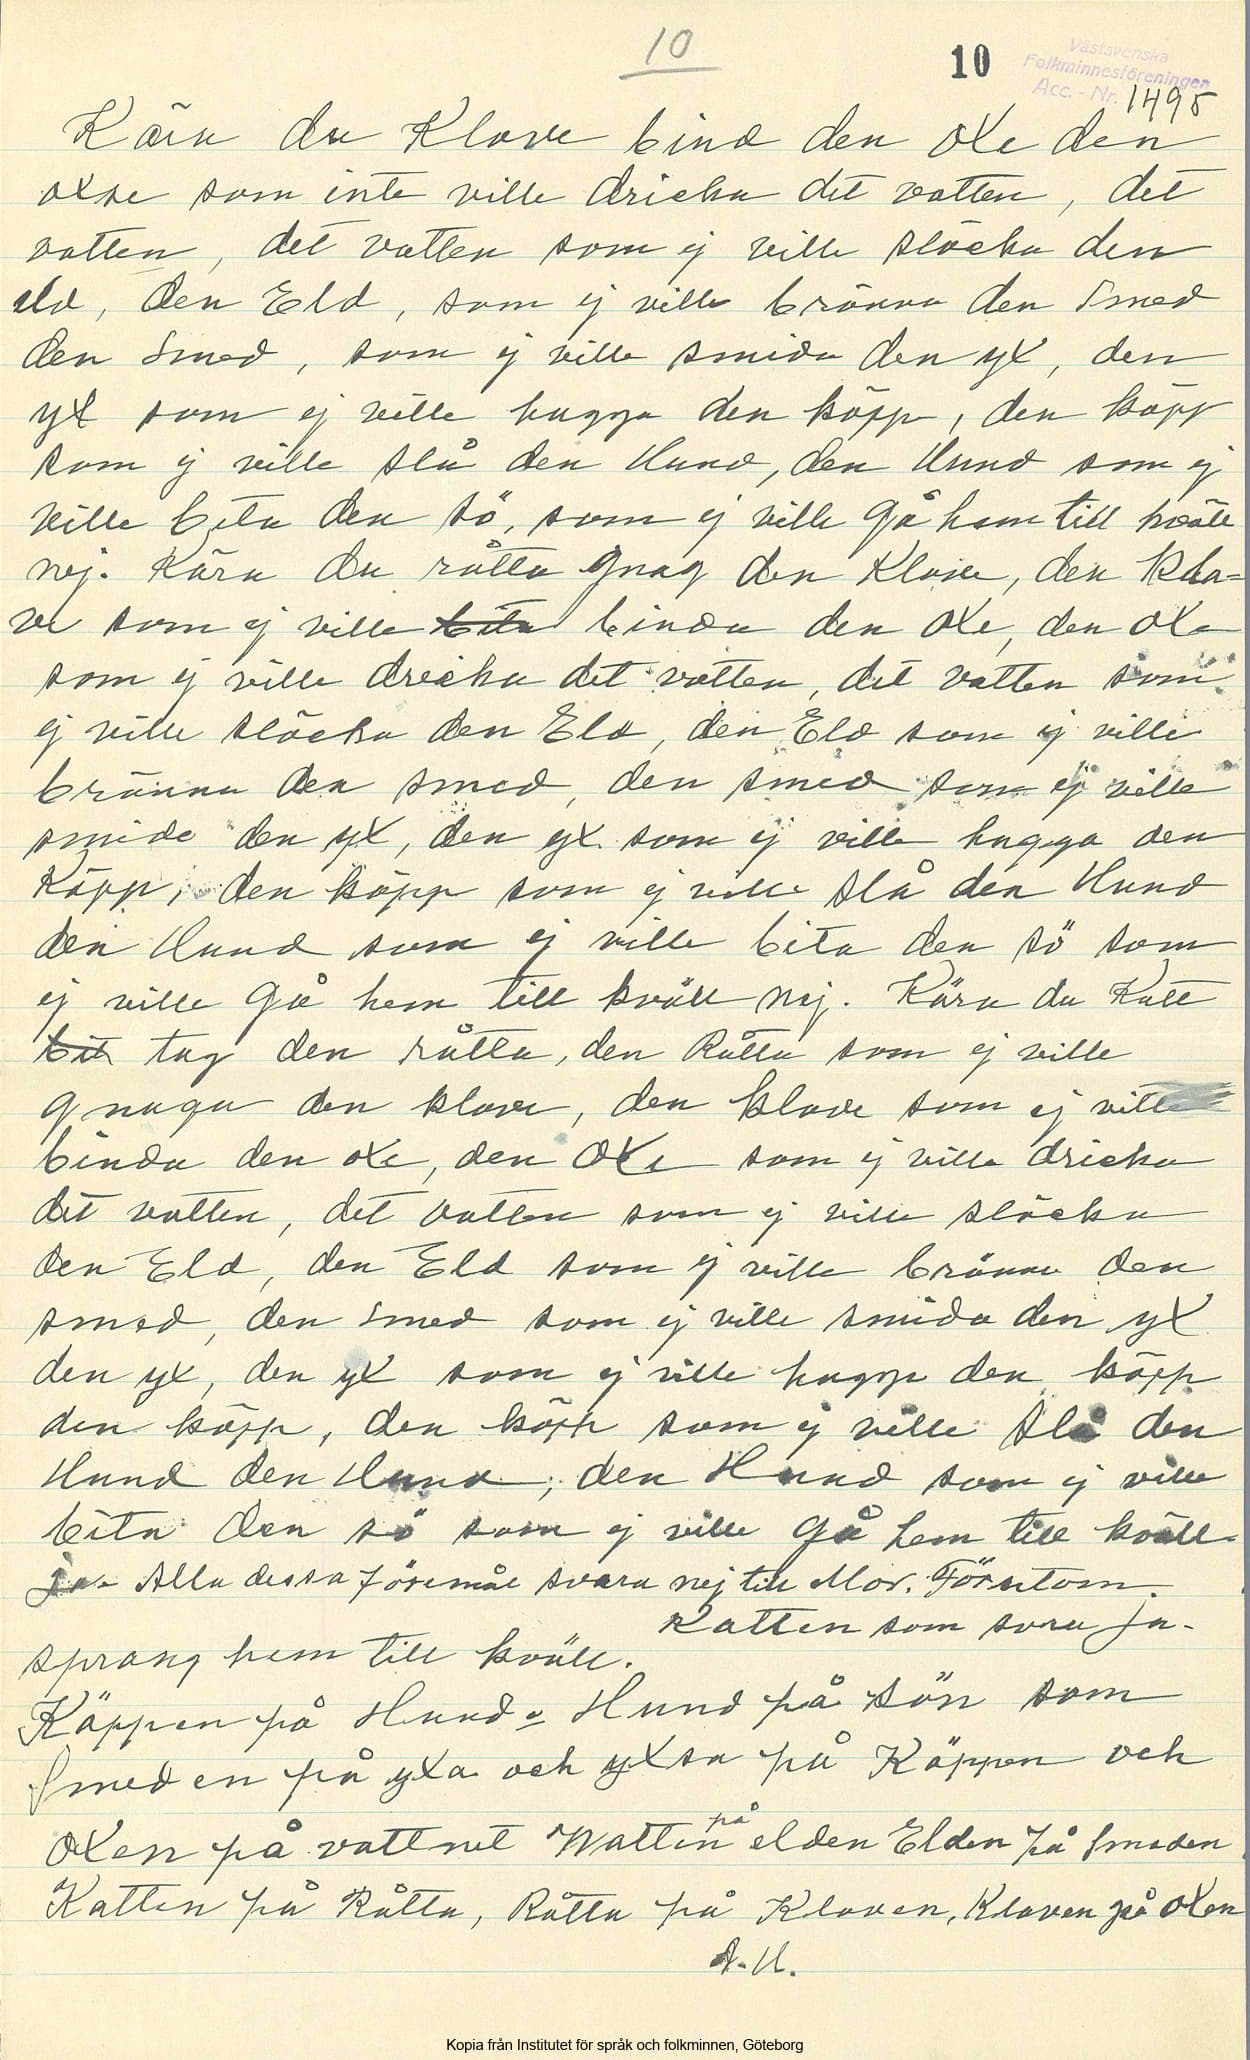 10
10
Västsvenska
Folkminnesföreningen
Acc. - Nr. 1495
Kära du Klave bind den oxe den
oxse som inte ville dricka det vatten, det
vatten, det vatten som ej ville släcka den
eld, den Eld, som ej ville bränna den Smed
den Smed, som ej ville smida den yx, den
yx som ej ville hugga den käpp, den käpp
som ej ville slå den Hund, den Hund som ej
ville bita den sö, som ej ville gå hem till kväll
nej. Kära du råtta gnag den Klave, den Kla=
ve som ej ville bita binda den oxe, den oxe
som ej ville dricka det vatten, det vatten som
ej ville släcka den Eld, den Eld som ej ville
bränna den smed, den smed som ej ville
smida den yx, den yx som ej ville hugga den
Käpp, den käpp som ej ville slå den Hund
den Hund som ej ville bita den sö som
ej ville gå hem till kväll nej. Kära du Katt
bit tag den råtta, den Råtta som ej ville
gnaga den klave, den klave som ej ville
binda den oxe, den oxe som ej ville dricka
det vatten, det vatten som ej ville släcka
den Eld, den Eld som ej ville bränna den
smed, den Smed som ej ville smida den yx
den yx, den yx som ej ville hugga den käpp
den käpp, den käpp som ej ville slå den
Hund den Hund, den Hund som ej ville
bita den sö som ej ville gå hem till kväll-
ja- Alla dessa föremål svara nej till Mor. Förutom
Katten som svara ja-
sprang hem till kväll.
Käppen på Hund o Hund på sön som
Smeden på yxa och yxsa på Käppen och
oxen på vattnet Watten på elden Elden på Smeden
Katten på Råtta, Råtta på Klaven, Klaven på oxen
A. H.
Kopia från Institutet för språk och folkminnen, Göteborg